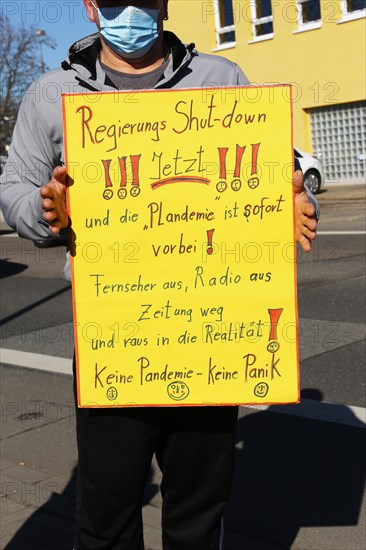 Regierungs Shut-down
!!! Jetzt !!!
und die "Plandemie" ist sofort
vorbei!
Fernseher aus, Radio aus
Zeitung weg
und raus in die Realität!
Keine Pandemie - keine Panik